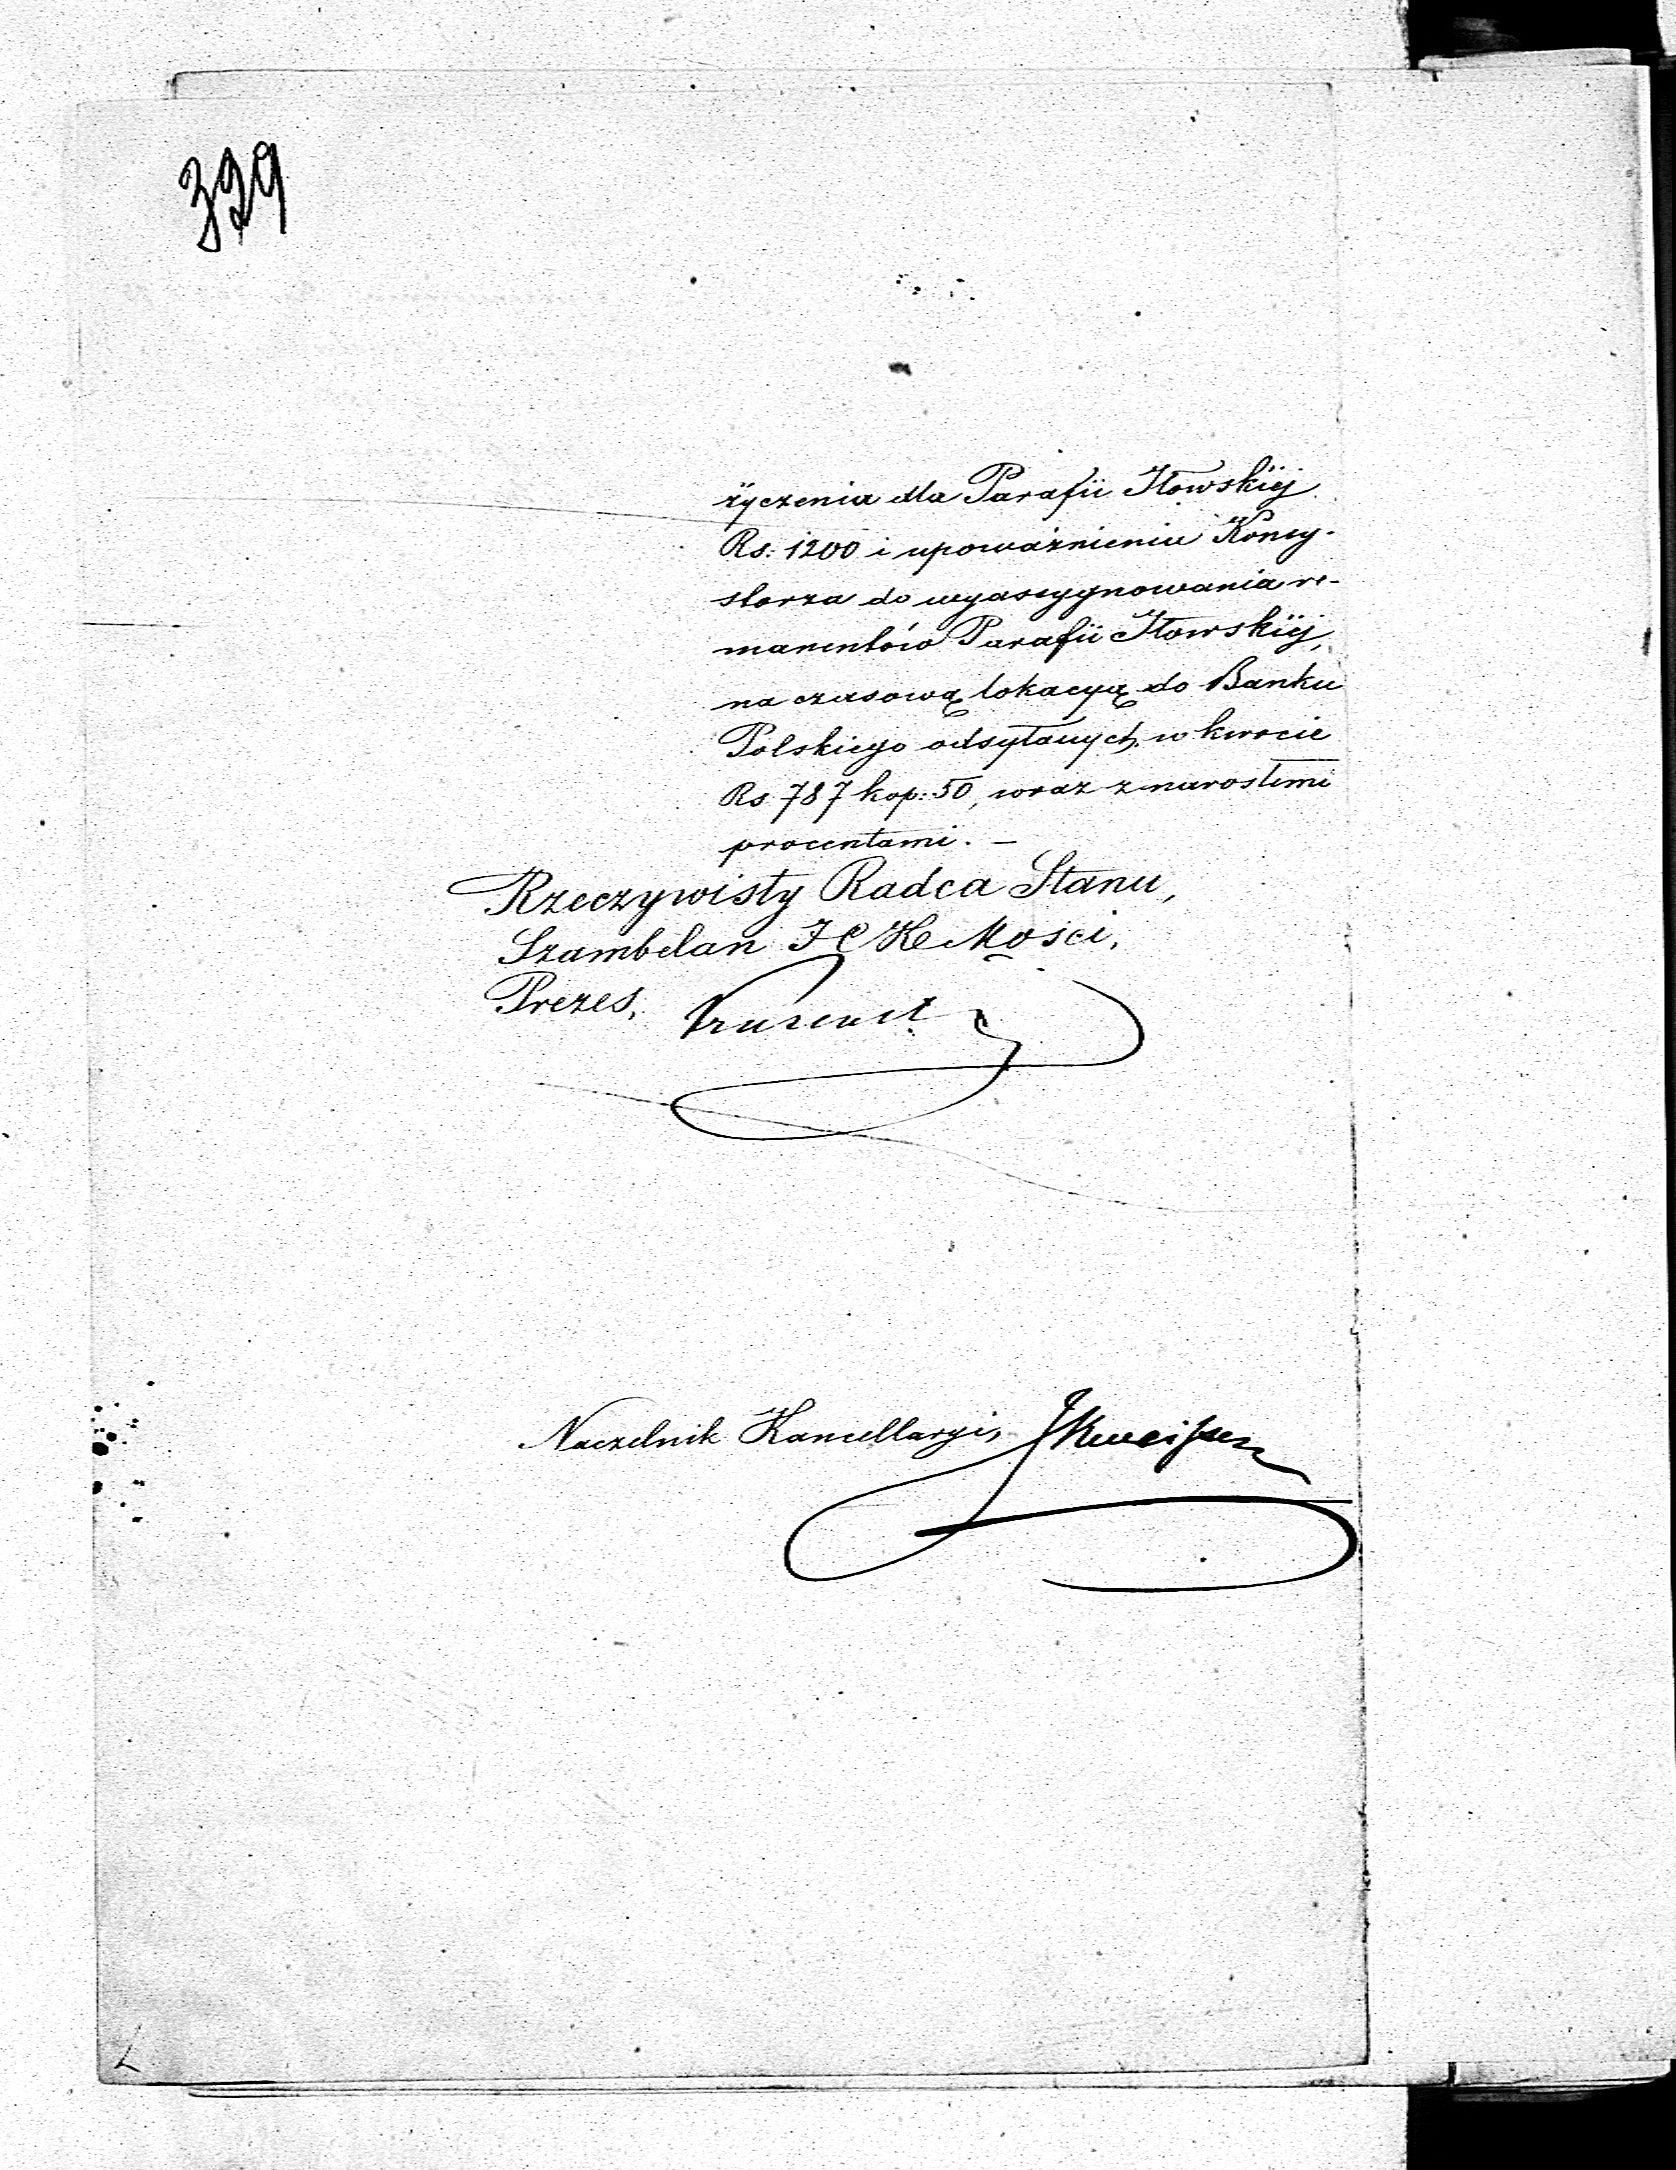 329
życzenia dla Parafii Iłowskiéj
Rs: 1200 i upoważnieniu Konsy-
storza do wyassygnowania re-
manentów Parafii Iłowskiéj,
na czasową lokacyą do Banku
Polskiego odsyłanych, w kwocie
Rs. 787 kop: 50, wraz z narosłemi
procentami. —
Rzeczywisty Radca Stanu,
Szambelan J C K Mości,
Prezes,
Naczelnik Kancellaryi,